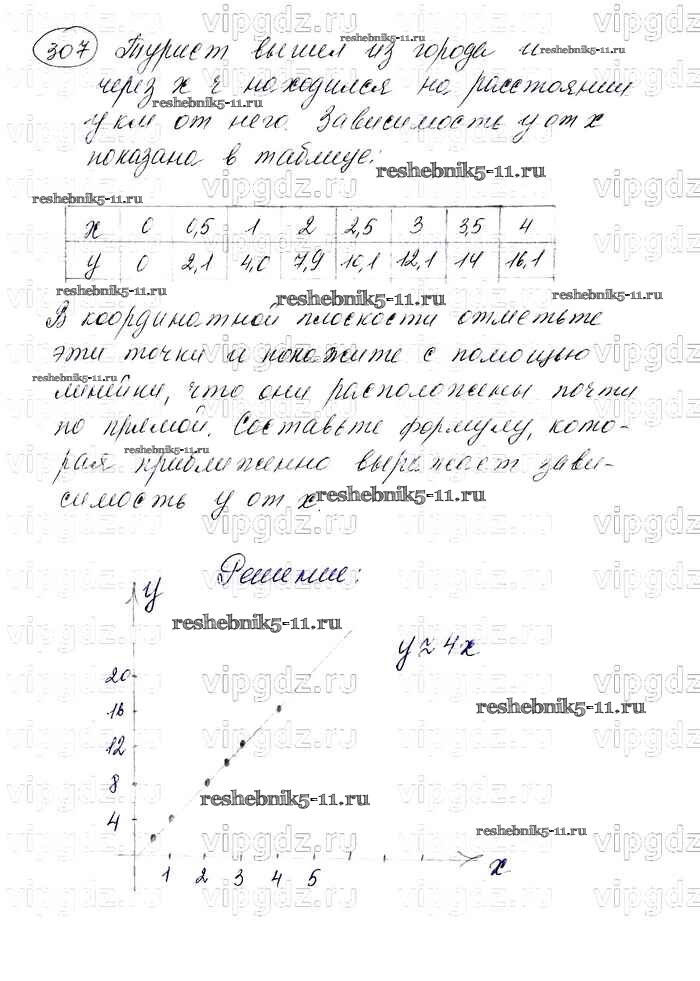 307 Турист вышел из города и
через x ч находился на расстоянии
y км от него. Зависимость y от x
показана в таблице:
x 0 0,5 1 2 2,5 3 3,5 4
y 0 2,1 4,0 7,9 10,1 12,1 14 16,1
В координатной плоскости отметьте
эти точки и покажите с помощью
линейки, что они расположены почти
по прямой. Составьте формулу, кото-
рая приближенно выражает зави-
симость y от x.
Решение:
y
y ≈ 4x
20
16
12
8
4
1 2 3 4 5 x
reshebnik5-11.ru
vipgdz.ru